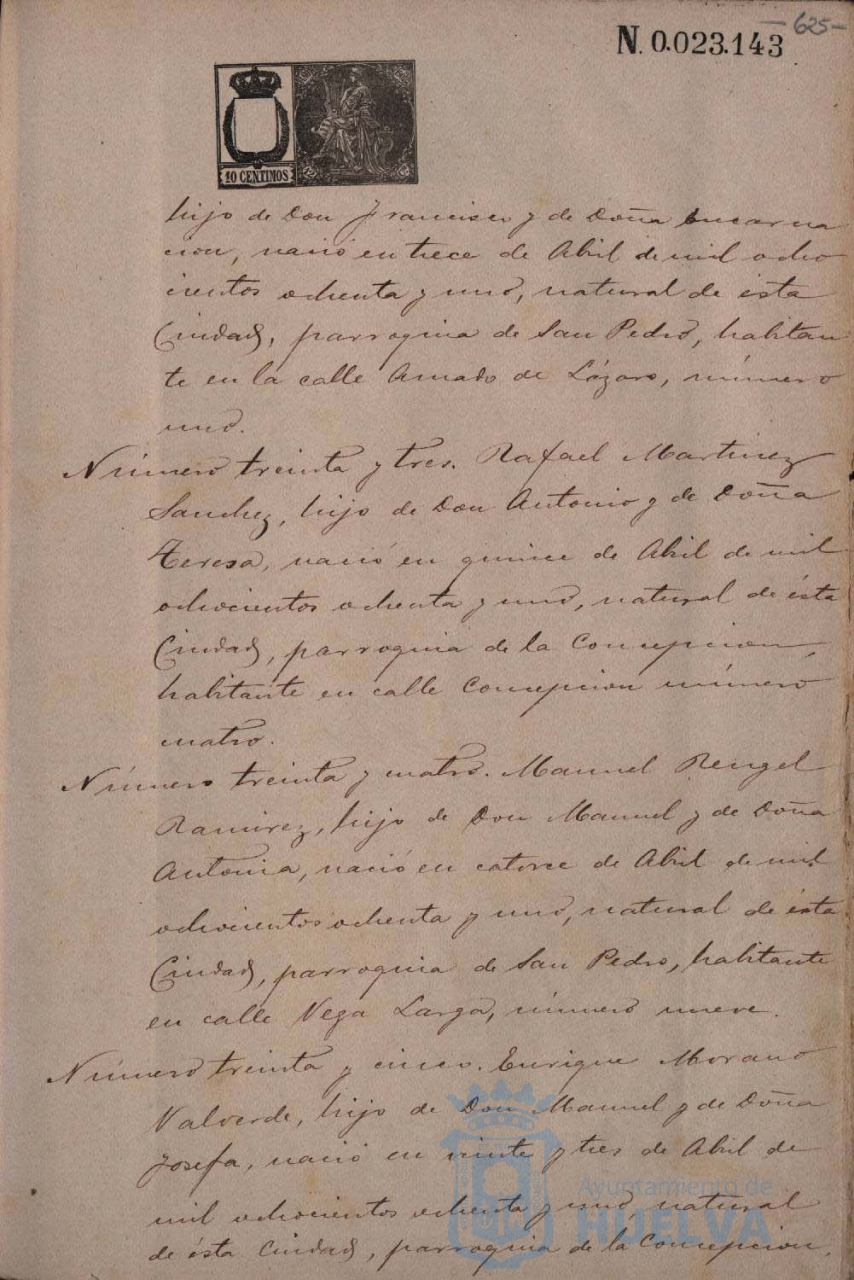 -625-
N. 0.023.143
10 CENTIMOS
hijo de Don Francisco y de Doña Encarna
cion, nació en trece de Abril de mil ocho
cientos ochenta y uno, natural de ésta
Ciudad, parroquia de San Pedro, habitan
te en la calle Amado de Lázaro, número
uno.
Número treinta y tres. Rafael Martinez
Sanchez, hijo de Don Antonio y de Doña
Teresa, nació en quince de Abril de mil
ochocientos ochenta y uno, natural de ésta
Ciudad, parroquia de la Concepcion,
habitante en calle Concepcion número
cuatro.
Número treinta y cuatro. Manuel Rengel
Ramirez, hijo de Don Manuel y de Doña
Antonia, nació en catorce de Abril de mil
ochocientos ochenta y uno, natural de ésta
Ciudad, parroquia de San Pedro, habitante
en calle Vega Larga, número nueve.
Número treinta y cinco. Enrique Morano
Valverde, hijo de Don Manuel y de Doña
Josefa, nació en veinte y tres de Abril de
mil ochocientos ochenta y uno natural
de ésta Ciudad, parroquia de la Concepcion,
Ayuntamiento de
HUELVA